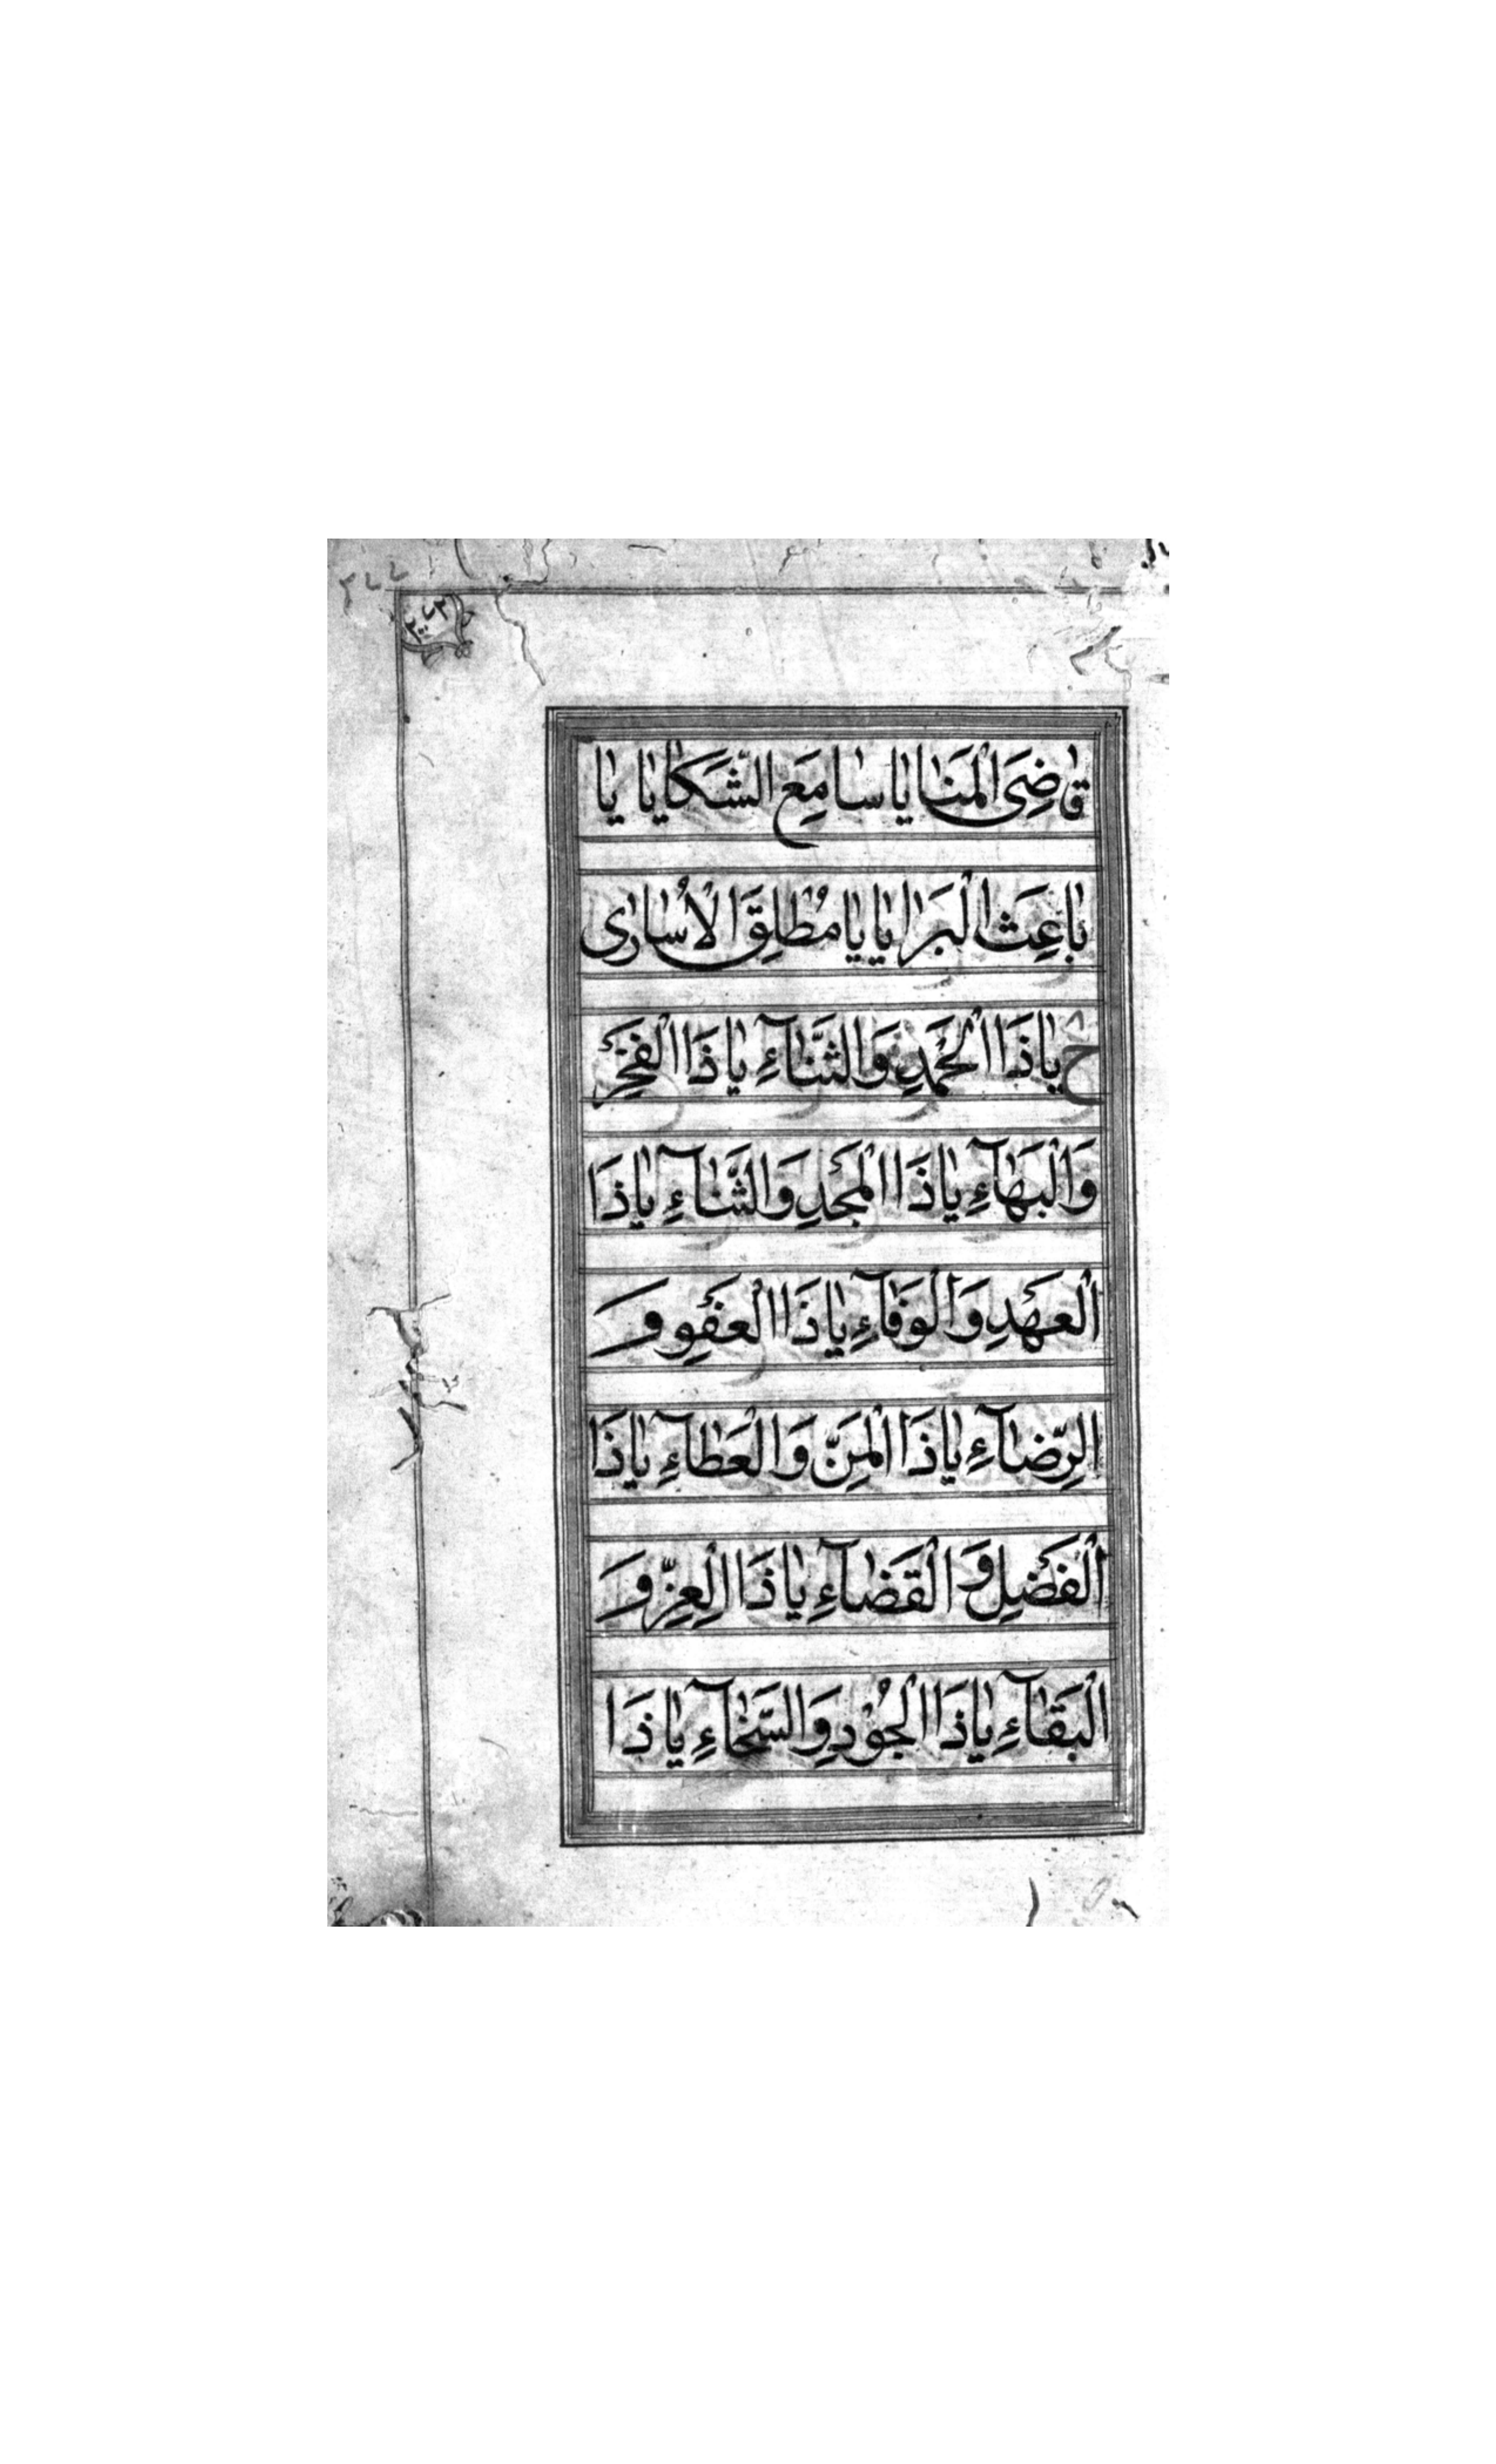 قاضِىَ الْمَنايا يا سامِعَ الشَّكايا يا
باعِثَ الْبَرايا يا مُطْلِقَ الْاُسارى
ح يا ذَا الْحَمْدِ وَالثَّنآءِ يا ذَا الْفَخْرِ
وَالْبَهآءِ يا ذَا الْمَجْدِ وَالثَّنآءِ يا ذَا
الْعَهْدِ وَالْوَفآءِ يا ذَا الْعَفْوِ وَ
الرِّضآءِ يا ذَا الْمَنِّ وَالْعَطآءِ يا ذَا
الْفَضْلِ وَ الْقَضآءِ يا ذَا الْعِزِّ وَ
الْبَقآءِ يا ذَا الْجُوْدِ وَالسَّخآءِ يا ذَا